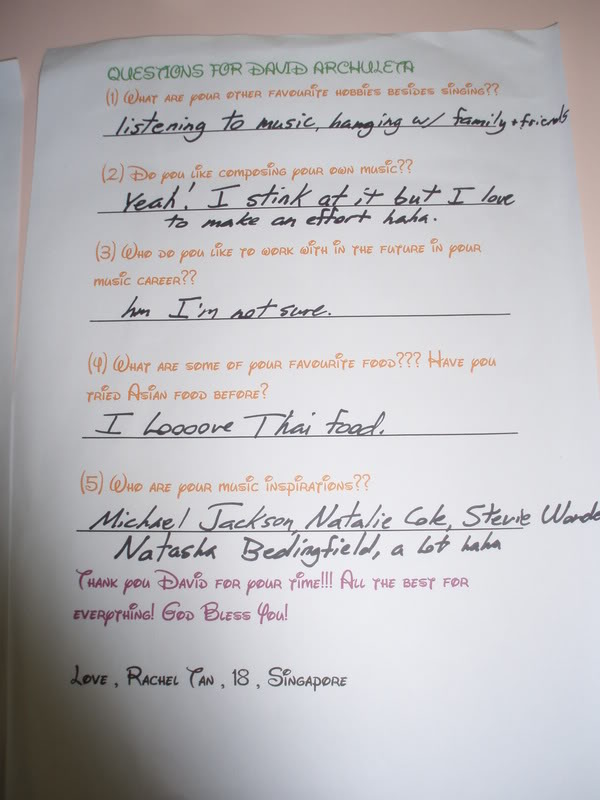 QUESTIONS FOR DAVID ARCHULETA
(1) WHAT ARE YOUR OTHER FAVOURITE HOBBIES BESIDES SINGING??
listening to music, hanging w/ family + friends
(2) DO YOU LIKE COMPOSING YOUR OWN MUSIC??
Yeah! I stink at it but I love
to make an effort haha.
(3) WHO DO YOU LIKE TO WORK WITH IN THE FUTURE IN YOUR
MUSIC CAREER??
hm I'm not sure.
(4) WHAT ARE SOME OF YOUR FAVOURITE FOOD??? HAVE YOU
TRIED ASIAN FOOD BEFORE?
I Loooove Thai food.
(5) WHO ARE YOUR MUSIC INSPIRATIONS??
Michael Jackson, Natalie Cole, Stevie Wonde
Natasha Bedingfield, a lot haha
THANK YOU DAVID FOR YOUR TIME!!! ALL THE BEST FOR
EVERYTHING! GOD BLESS YOU!
LOVE , RACHEL TAN , 18 , SINGAPORE